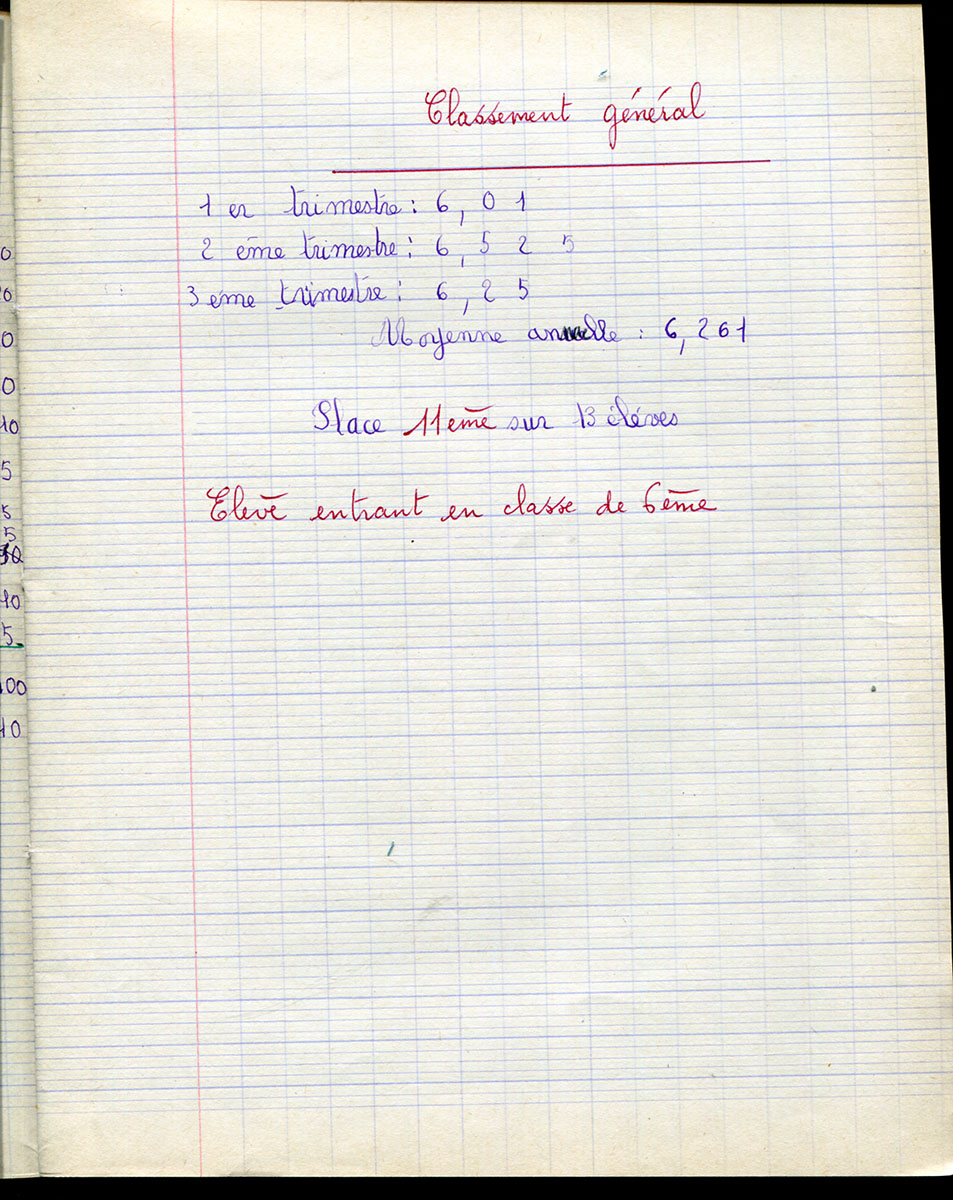 Classement général
1 er trimestre : 6, 0 1
2 ème trimestre : 6, 5 2 5
3 eme trimestre : 6, 2 5
Moyenne annuelle : 6, 261
Place 11 eme sur 13 éléves
Elevē entrant en classe de 6ēme
0
0
0
0
10
5
5
5
10
5
100
10